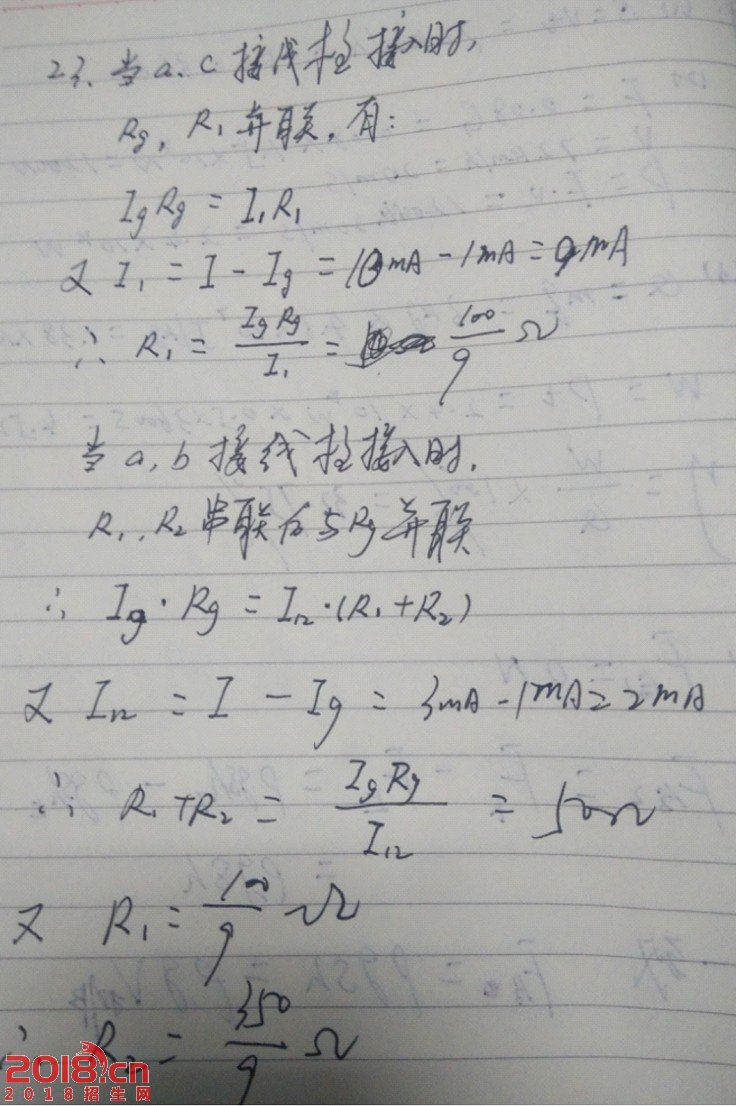 23. 当a.c接线柱接入时,
Rg, R₁并联,有:
IgRg = I₁R₁
又 I₁ = I - Ig = 10mA - 1mA = 9mA
∴ R₁ = IgRg/I₁ = 100/9 Ω
当a,b接线柱接入时,
R₁,R₂串联后与Rg并联
∴ Ig·Rg = I₁₂·(R₁+R₂)
又 I₁₂ = I - Ig = 3mA - 1mA = 2mA
∴ R₁+R₂ = IgRg/I₁₂ = 50Ω
又 R₁ = 100/9 Ω
∴ R₂ = 350/9 Ω
2018.cn
2018招生网